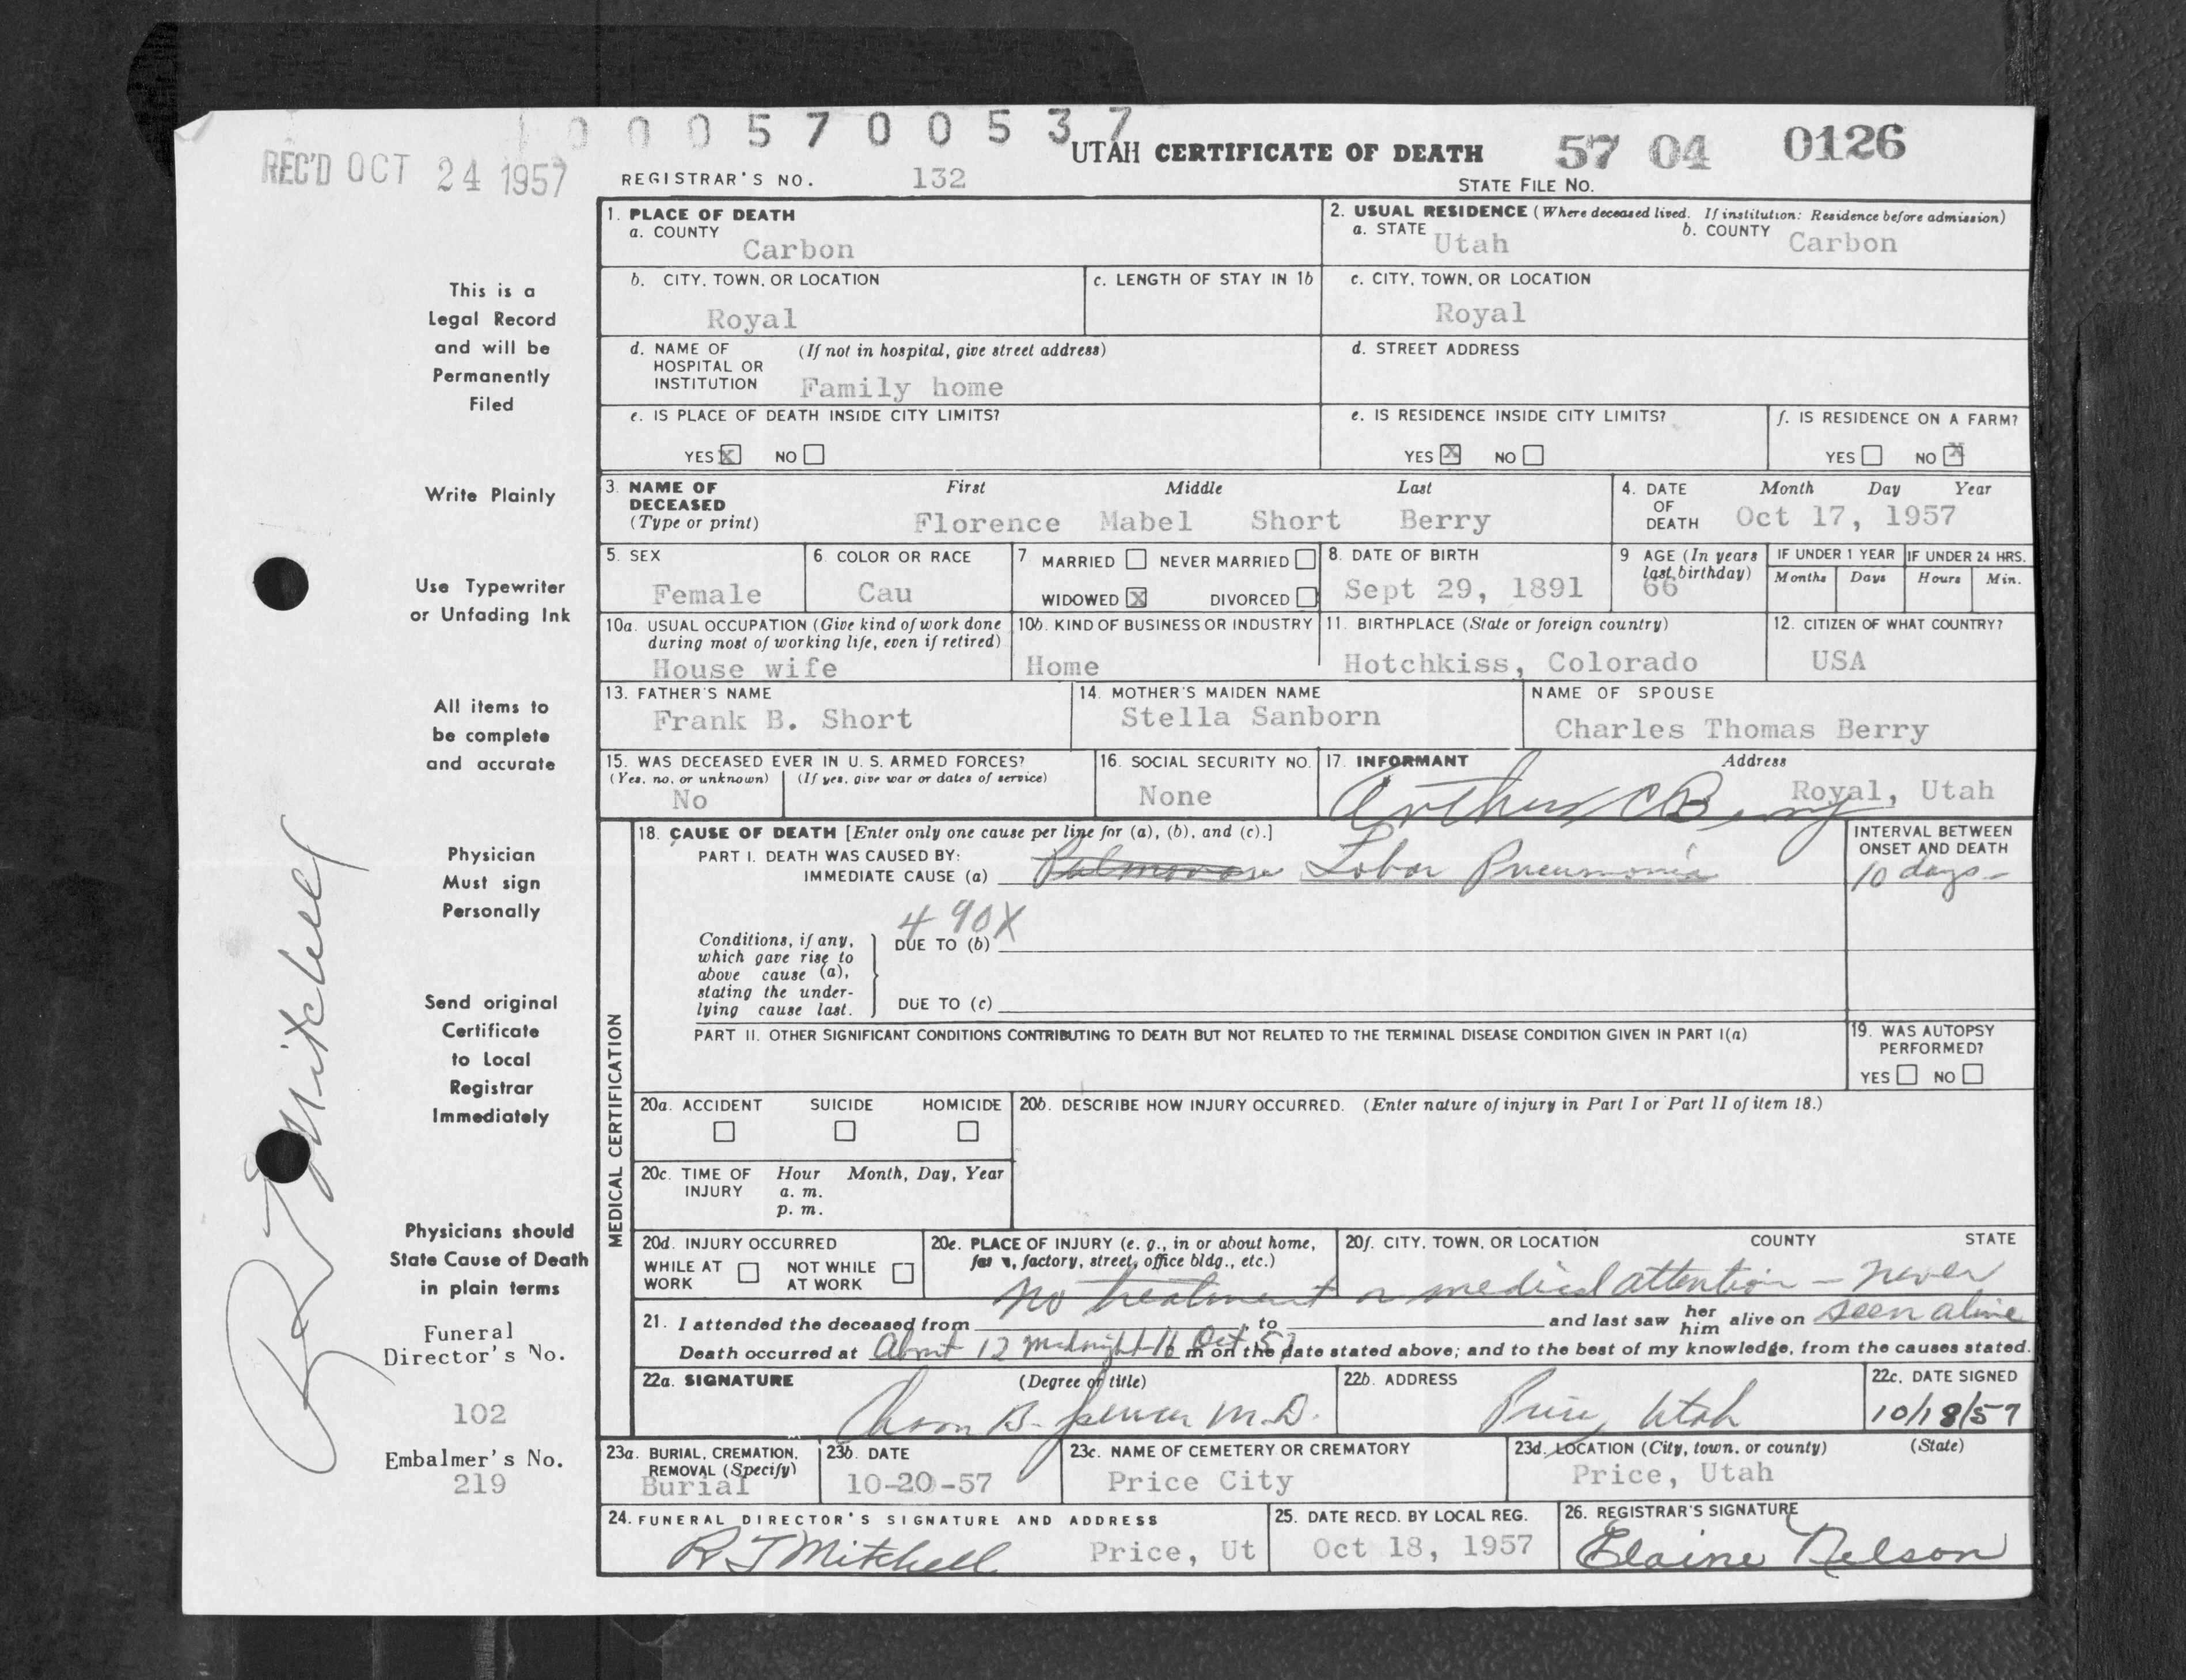 0 0 0 5 7 0 0 5 3 7
REC'D OCT 24 1957
UTAH CERTIFICATE OF DEATH 57 04 0126
REGISTRAR'S NO. 132 STATE FILE NO.
This is a
Legal Record
and will be
Permanently
Filed
Write Plainly
Use Typewriter
or Unfading Ink
All items to
be complete
and accurate
Physician
Must sign
Personally
Send original
Certificate
to Local
Registrar
Immediately
Physicians should
State Cause of Death
in plain terms
Funeral
Director's No.
102
Embalmer's No.
219
R J Mitchell
1. PLACE OF DEATH
a. COUNTY
Carbon
2. USUAL RESIDENCE (Where deceased lived. If institution: Residence before admission)
a. STATE Utah b. COUNTY Carbon
b. CITY, TOWN, OR LOCATION
Royal
c. LENGTH OF STAY IN 1b
c. CITY, TOWN, OR LOCATION
Royal
d. NAME OF (If not in hospital, give street address)
HOSPITAL OR
INSTITUTION Family home
d. STREET ADDRESS
e. IS PLACE OF DEATH INSIDE CITY LIMITS?
YES X NO
e. IS RESIDENCE INSIDE CITY LIMITS?
YES X NO
f. IS RESIDENCE ON A FARM?
YES NO X
3. NAME OF First Middle Last
DECEASED
(Type or print) Florence Mabel Short Berry
4. DATE Month Day Year
OF
DEATH Oct 17, 1957
5. SEX
Female
6. COLOR OR RACE
Cau
7 MARRIED NEVER MARRIED
WIDOWED X DIVORCED
8. DATE OF BIRTH
Sept 29, 1891
9 AGE (In years
last birthday)
66
IF UNDER 1 YEAR
Months Days
IF UNDER 24 HRS.
Hours Min.
10a. USUAL OCCUPATION (Give kind of work done
during most of working life, even if retired)
House wife
10b. KIND OF BUSINESS OR INDUSTRY
Home
11. BIRTHPLACE (State or foreign country)
Hotchkiss, Colorado
12. CITIZEN OF WHAT COUNTRY?
USA
13. FATHER'S NAME
Frank B. Short
14. MOTHER'S MAIDEN NAME
Stella Sanborn
NAME OF SPOUSE
Charles Thomas Berry
15. WAS DECEASED EVER IN U. S. ARMED FORCES?
(Yes, no, or unknown) (If yes, give war or dates of service)
No
16. SOCIAL SECURITY NO.
None
17. INFORMANT Address
Arthur C Berry Royal, Utah
MEDICAL CERTIFICATION
18. CAUSE OF DEATH [Enter only one cause per line for (a), (b), and (c).]
PART I. DEATH WAS CAUSED BY:
IMMEDIATE CAUSE (a) Lobar Pneumonia
INTERVAL BETWEEN
ONSET AND DEATH
10 days -
490X
Conditions, if any,
which gave rise to
above cause (a),
stating the under-
lying cause last.
DUE TO (b)
DUE TO (c)
PART II. OTHER SIGNIFICANT CONDITIONS CONTRIBUTING TO DEATH BUT NOT RELATED TO THE TERMINAL DISEASE CONDITION GIVEN IN PART I(a)
19. WAS AUTOPSY
PERFORMED?
YES NO
20a. ACCIDENT SUICIDE HOMICIDE
20b. DESCRIBE HOW INJURY OCCURRED. (Enter nature of injury in Part I or Part II of item 18.)
20c. TIME OF Hour Month, Day, Year
INJURY a. m.
p. m.
20d. INJURY OCCURRED
WHILE AT WORK NOT WHILE AT WORK
20e. PLACE OF INJURY (e. g., in or about home,
factory, street, office bldg., etc.)
20f. CITY, TOWN, OR LOCATION COUNTY STATE
No treatment or medical attention - never
21. I attended the deceased from to and last saw her him alive on seen alive
Death occurred at About 12 Midnight 16 Oct 57 m on the date stated above; and to the best of my knowledge, from the causes stated.
22a. SIGNATURE (Degree or title)
M.D.
22b. ADDRESS
Price, Utah
22c. DATE SIGNED
10/18/57
23a. BURIAL, CREMATION,
REMOVAL (Specify)
Burial
23b. DATE
10-20-57
23c. NAME OF CEMETERY OR CREMATORY
Price City
23d. LOCATION (City, town, or county) (State)
Price, Utah
24. FUNERAL DIRECTOR'S SIGNATURE AND ADDRESS
R J Mitchell Price, Ut
25. DATE RECD. BY LOCAL REG.
Oct 18, 1957
26. REGISTRAR'S SIGNATURE
Elaine Nelson